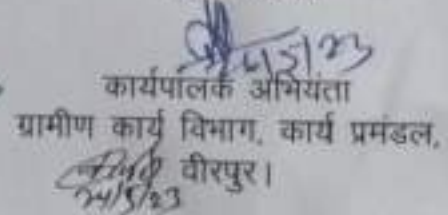 6/5/23
कार्यपालक अभियंता
ग्रामीण कार्य विभाग, कार्य प्रमंडल,
वीरपुर।
24/5/23